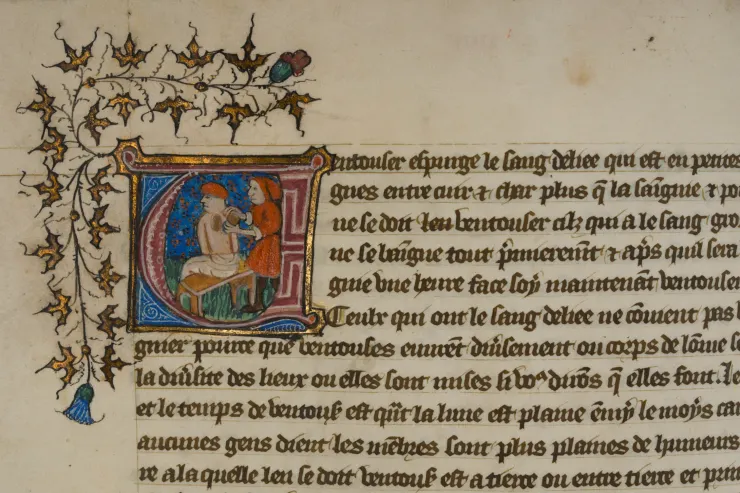 entouser espurge le sang deliee qui est en petites
gues entre cuir & char plus q̄ la saīgnie &
ne se doit len ventouser cilz qui a le sang gro
ne se baīgne tout p̄mierem̄t & ap̄s quil sera
gnie vne heure face soy maintenāt ventouser
Ceulx qui ont le sang deliee ne couient pas
gnier pource que ventouses euurēt diu̾sement ou corps de lōme
la diu̾site des lieux ou elles sont mises si vo᷒ dirōs q̄ elles font. Je
et le temps de ventous̾ est q̄nt la lune est plaine ēmy le moys car
aucunes gens dient les mēbres sont plus plaines de humeurs
re a la quelle len se doit ventous̾ est a tierce ou entre tierce et prim